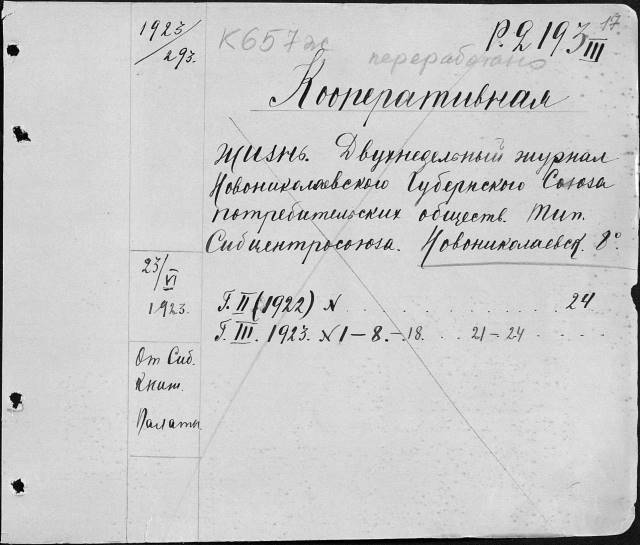 1923/293.
К657ж
Р.2 193/III
17
переработано
Кооперативная
жизнь. Двухнедельный журнал
Новониколаевского Губернского Союза
потребительских обществ. Тип.
Сибцентросоюза. Новониколаевск. 8°
23/VI
1923.
Г. II (1922) N . . . . . . . . . . . 24
Г. III. 1923. N 1–8.–18. . . 21–24
От Сиб.
Книж.
Палаты